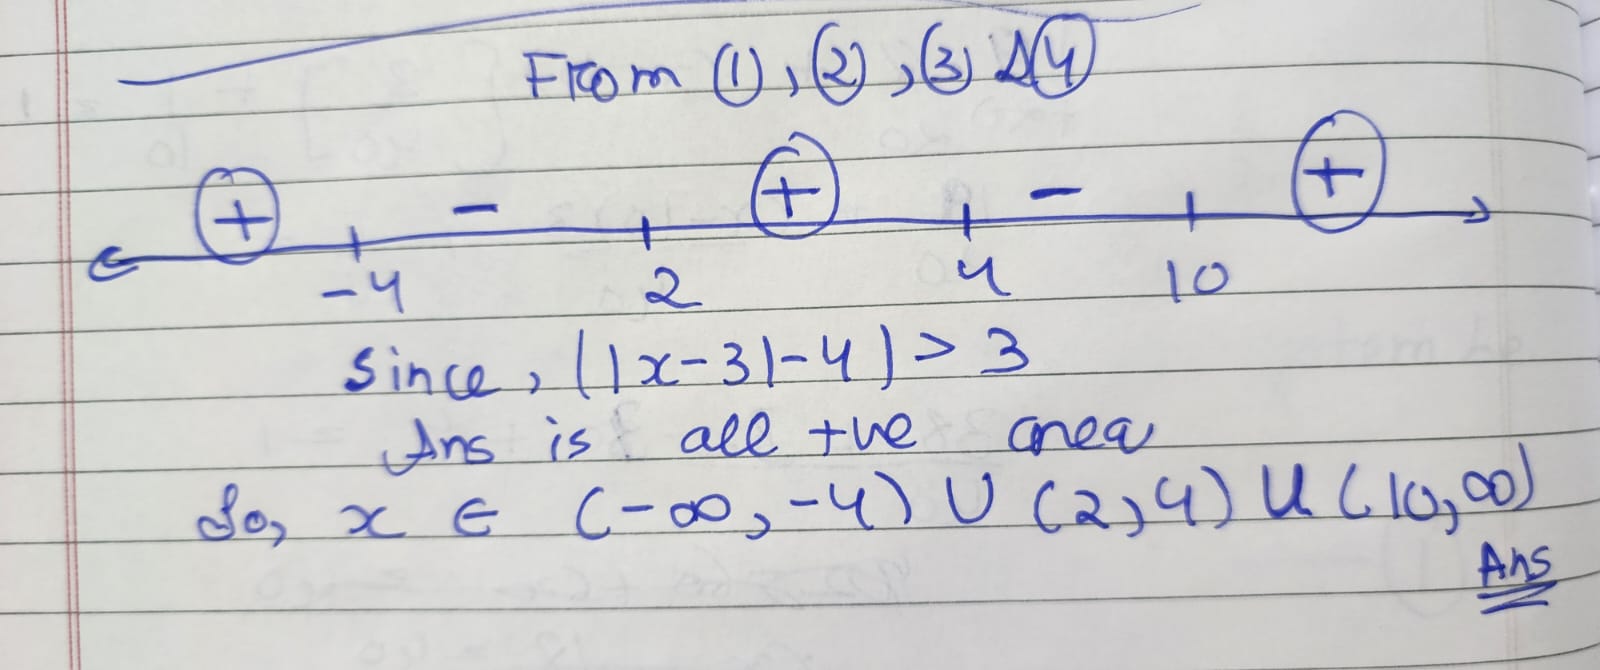 From ①, ②, ③ & ④
+ − + − +
-4 2 4 10
Since, ||x-3|-4| > 3
Ans is all +ve area
So, x ∈ (-∞, -4) U (2, 4) U (10, ∞)
Ans